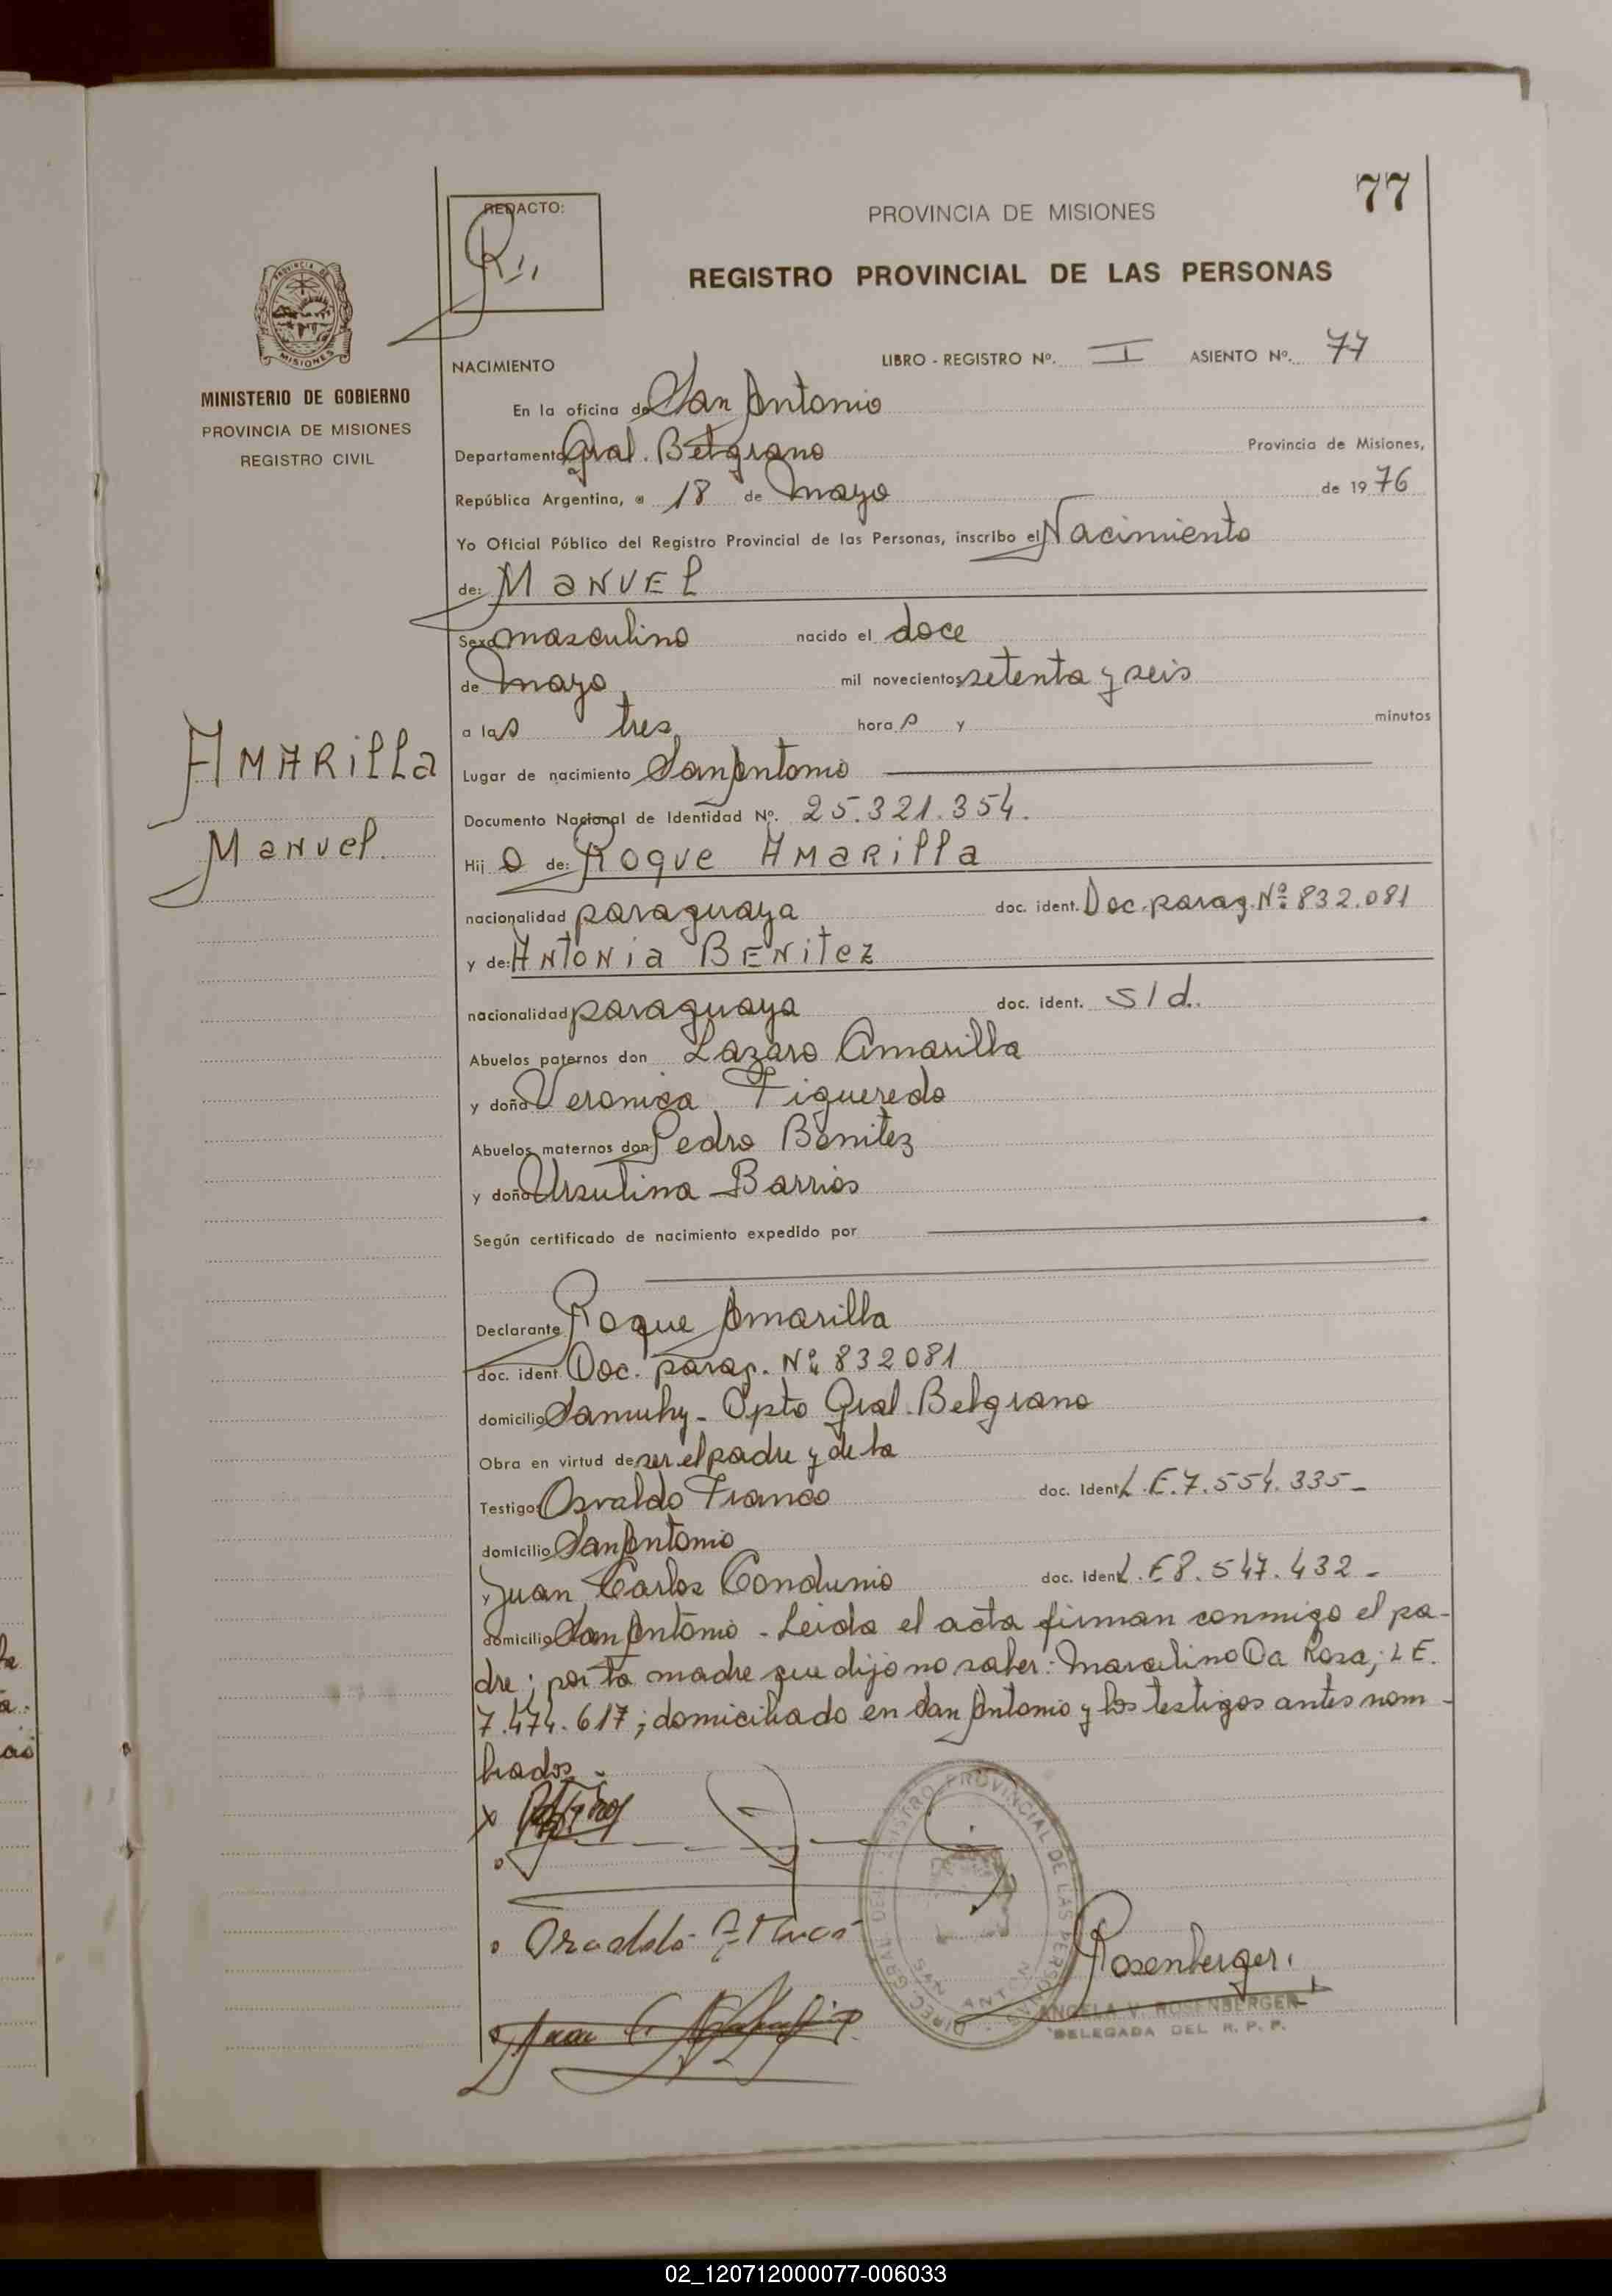 77
REDACTO:
PROVINCIA DE MISIONES
REGISTRO PROVINCIAL DE LAS PERSONAS
PROVINCIA DE
MISIONES
MINISTERIO DE GOBIERNO
PROVINCIA DE MISIONES
REGISTRO CIVIL
NACIMIENTO LIBRO - REGISTRO Nº. I ASIENTO Nº. 77
En la oficina de San Antonio
Departamento Gral. Belgrano Provincia de Misiones,
República Argentina, a 18 de Mayo de 1976
Yo Oficial Público del Registro Provincial de las Personas, inscribo el Nacimiento
de: MANUEL
Sexo masculino nacido el doce
de Mayo mil novecientos setenta y seis
a las tres hora s y minutos
AMARILLA
Manuel.
Lugar de nacimiento San Antonio
Documento Nacional de Identidad Nº. 25.321.354.
Hij o de: Roque AMARILLA
nacionalidad paraguaya doc. ident. Doc. parag. Nº 832.081
y de: ANTONIA BENITEZ
nacionalidad paraguaya doc. ident. S/d.
Abuelos paternos don Lazaro Amarilla
y doña Veronica Figueredo
Abuelos maternos don Pedro Benitez
y doña Ursulina Barrios
Según certificado de nacimiento expedido por
Declarante Roque Amarilla
doc. ident. Doc. parag. Nº 832081
domicilio Samuhy - Dpto Gral. Belgrano
Obra en virtud de ser el padre y de la
Testigos Osvaldo Franco doc. Ident. L.E.7.554.335-
domicilio San Antonio
y Juan Carlos doc. Ident. L.E 8.547.432-
domicilio San Antonio - Leida el acta firman conmigo el pa-
dre; por la madre que dijo no saber: Marcelino Da Rosa; L E.
7.474.617; domiciliado en San Antonio y los testigos antes nom-
brados.
DIREC. GRAL. DEL REGISTRO PROVINCIAL DE LAS PERSONAS
SAN ANTONIO
Rosenberger.
ANGELA V. ROSENBERGER
DELEGADA DEL R. P. P.
02_120712000077-006033